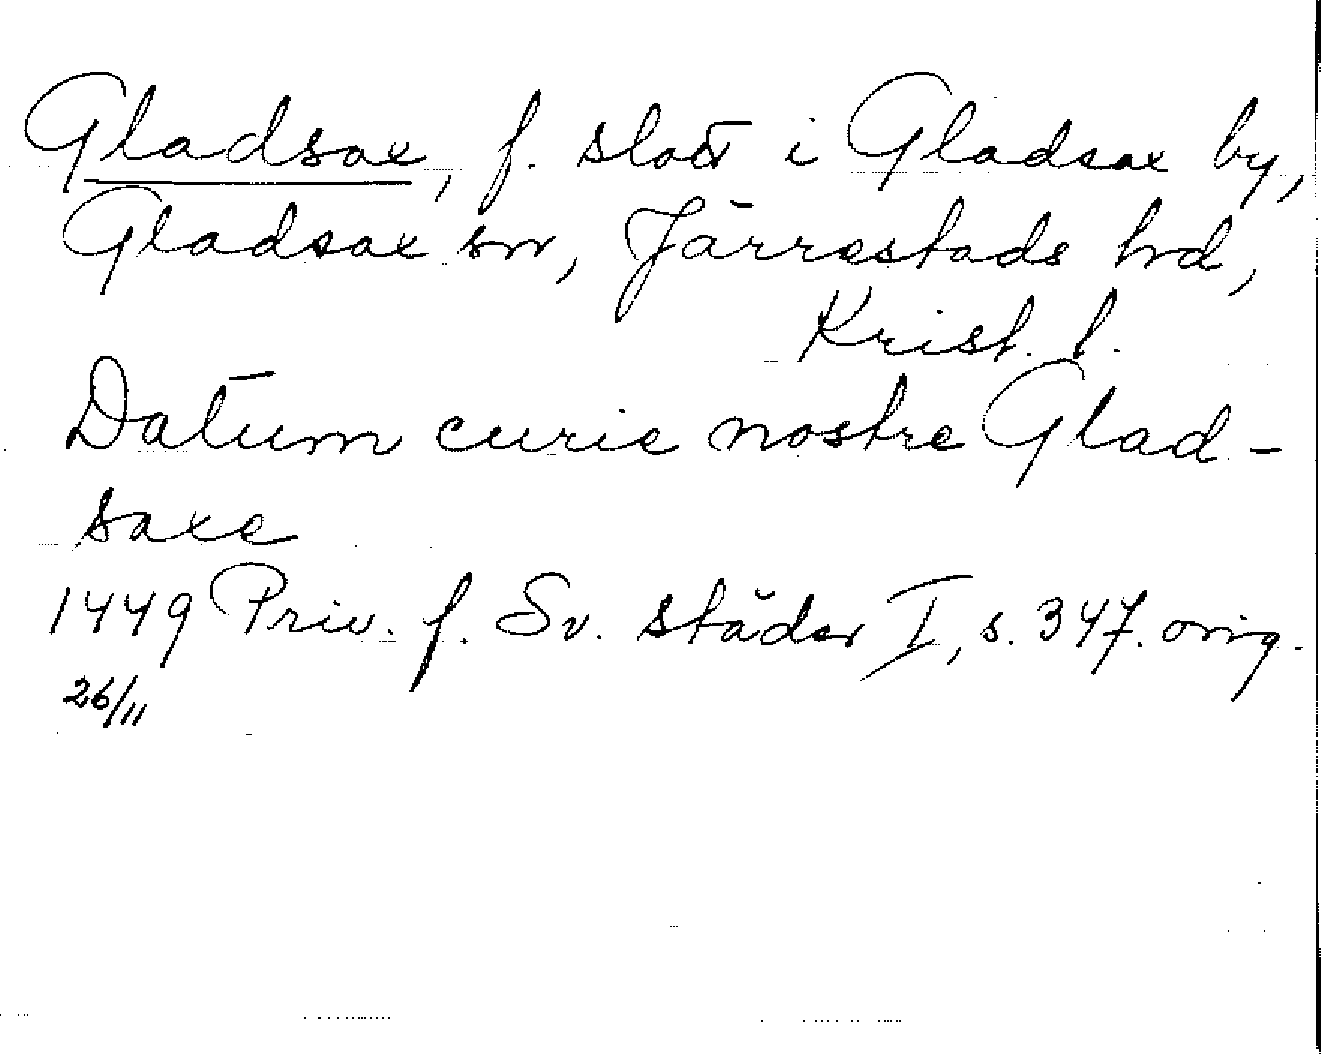 Gladsax, f. slott i Gladsax by,
Gladsax sn, Järrestads hrd,
Krist. l.
Datum curie nostre Glad-
saxe
1449 Priv. f. Sv. städer I, s. 347. orig.
26/11